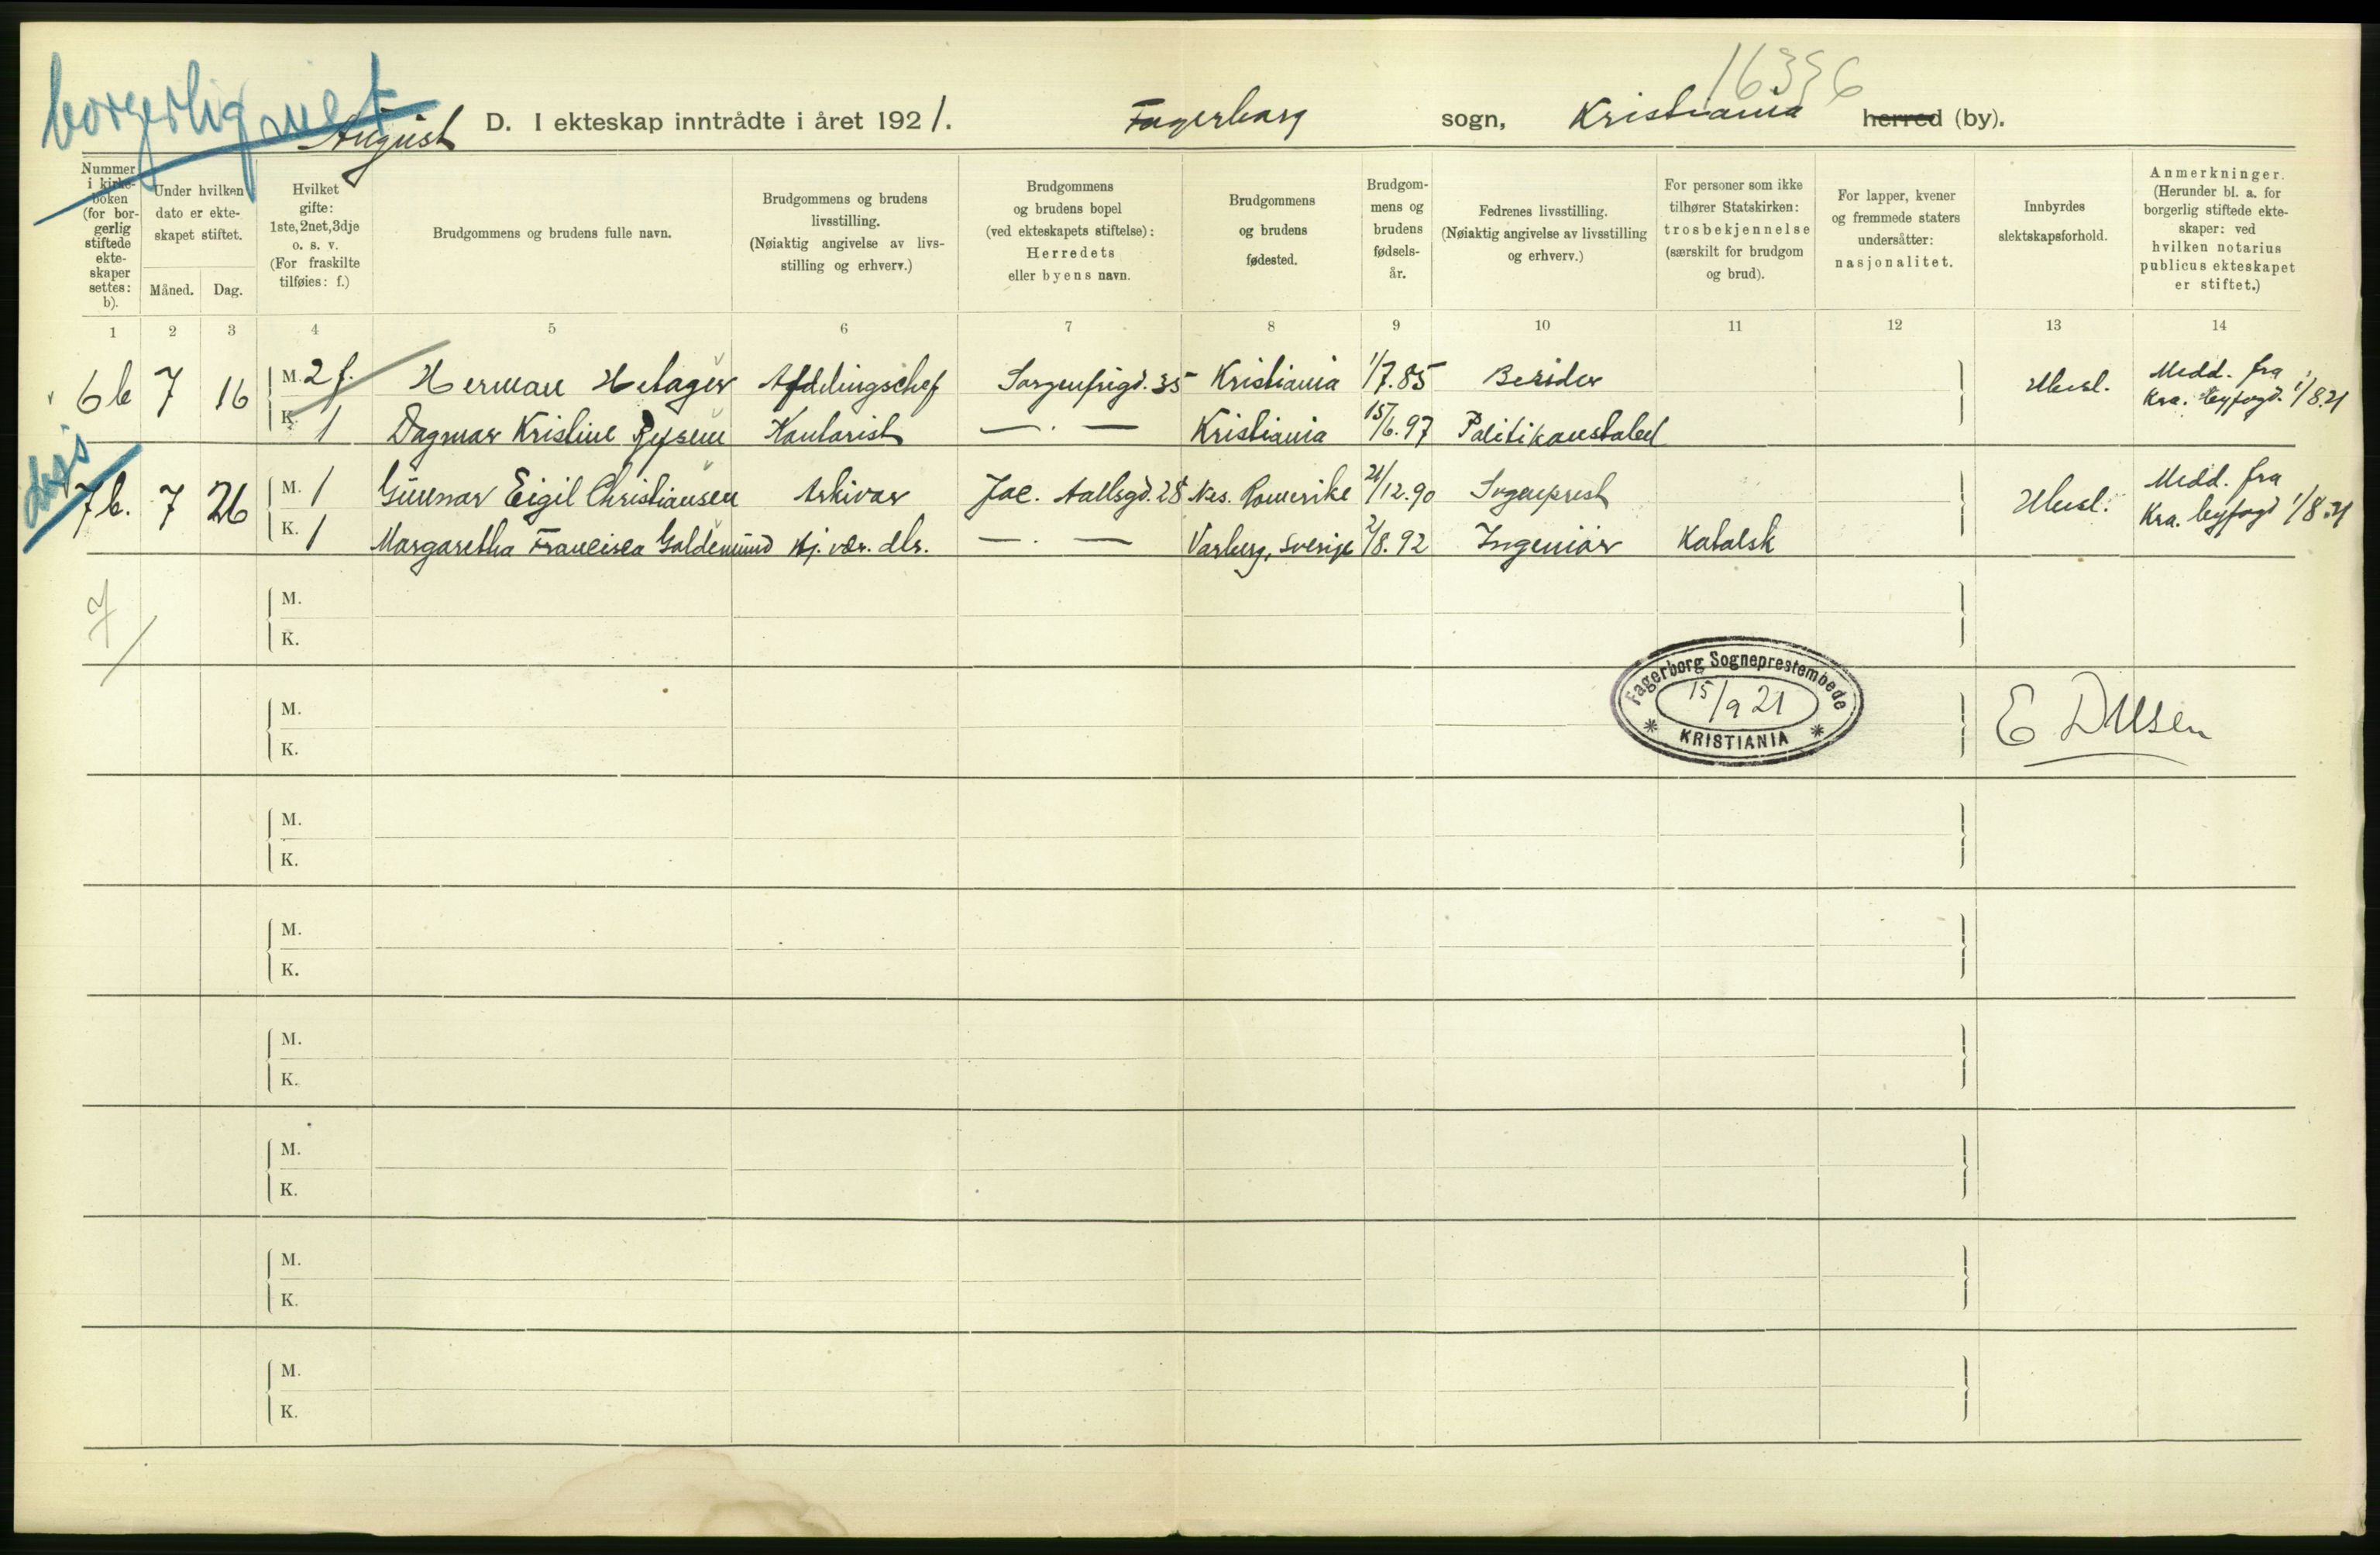 16356
borgerlig viet
August D. I ekteskap inntrådte i året 1921. Fagerborg sogn, Kristiania herred (by).
Nummer i kirke-boken (for bor-gerlig stiftede ekte-skaper settes: b).
Under hvilken dato er ekte-skapet stiftet.
Måned. Dag.
Hvilket gifte: 1ste, 2net, 3dje o. s. v. (For fraskilte tilføies: f.)
Brudgommens og brudens fulle navn.
Brudgommens og brudens livsstilling. (Nøiaktig angivelse av livs-stilling og erhverv.)
Brudgommens og brudens bopel (ved ekteskapets stiftelse): Herredets eller byens navn.
Brudgommens og brudens fødested.
Brudgom-mens og brudens fødsels-år.
Fedrenes livsstilling. (Nøiaktig angivelse av livsstilling og erhverv.)
For personer som ikke tilhører Statskirken: trosbekjennelse (særskilt for brudgom og brud).
For lapper, kvener og fremmede staters undersåtter: nasjonalitet.
Innbyrdes slektskapsforhold.
Anmerkninger. (Herunder bl. a. for borgerlig stiftede ekte-skaper: ved hvilken notarius publicus ekteskapet er stiftet.)
1 2 3 4 5 6 7 8 9 10 11 12 13 14
6b 7 16 M. 2 f. Herman Hetager Afdelingschef Sorgenfrigd. 35 Kristiania 1/7.85 Ubesl. Medd. fra Kra. byfogd. 1/8.21
K. 1 Dagmar Kristine Kontorist — . — Kristiania 15/6.97 Politikonstabel
7b. 7 26 M. 1 Gunnar Eigil Christiansen Arkivar Jac. Aallsgd. 28 Nes. Romerike 21/12.90 Sogneprest Ubesl. Medd. fra Kra. byfogd 1/8.21
K. 1 Margaretha Francisca Goldemund — . — Varberg, Sverige 2/8.92 Ingeniør Katolsk
7/
M.
K.
Fagerborg Sogneprestembede
15/9 21
KRISTIANIA
M.
K.
M.
K.
M.
K.
M.
K.
M.
K.
M.
K.
M.
K.